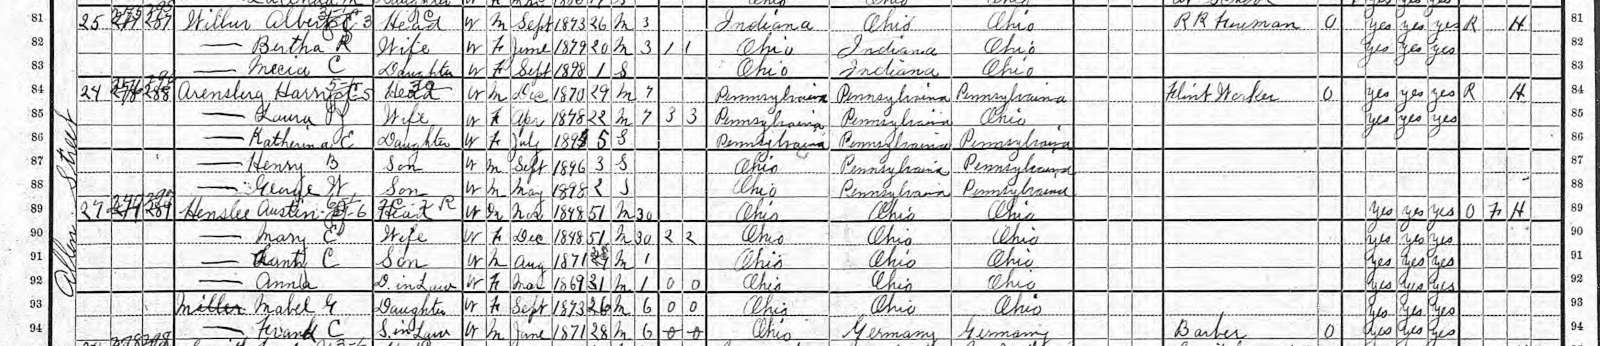 81 25 287 Wilbur Albert C 3 Head W M Sept 1873 26 M 3 Indiana Ohio Ohio R R Fireman 0 yes yes yes R H 81
82 — Bertha R Wife W F June 1879 20 M 3 1 1 Ohio Indiana Ohio yes yes yes 82
83 — Mecia C Daughter W F Sept 1898 1 S Ohio Indiana Ohio 83
84 24 288 Arensberg Harry C 5 Head W M Dec 1870 29 M 7 Pennsylvania Pennsylvania Pennsylvania Flint Worker 0 yes yes yes R H 84
85 — Laura Wife W F Apr 1878 22 M 7 3 3 Pennsylvania Pennsylvania Ohio yes yes yes 85
86 — Katherina E Daughter W F July 5 S Pennsylvania Pennsylvania Pennsylvania 86
87 — Henry B Son W M Sept 1896 3 S Ohio Pennsylvania Pennsylvania 87
88 — George W Son W M May 1898 2 S Ohio Pennsylvania Pennsylvania 88
89 27 289 Henslee Austin 6 Head W M Nov 1848 51 M 30 Ohio Ohio Ohio yes yes yes O F H 89
90 — Mary E Wife W F Dec 1848 51 M 30 2 2 Ohio Ohio Ohio yes yes yes 90
91 — C Son W M Aug 1871 M 1 Ohio Ohio Ohio yes yes yes 91
92 — Anna D. in Law W F Mar 1869 31 M 1 0 0 Ohio Ohio Ohio yes yes yes 92
93 Miller Mabel G Daughter W F Sept 1873 26 M 6 0 0 Ohio Ohio Ohio yes yes yes 93
94 — Frank C S. in Law W M June 1871 28 M 6 0 0 Ohio Germany Germany Barber 0 yes yes yes 94
Allen Street